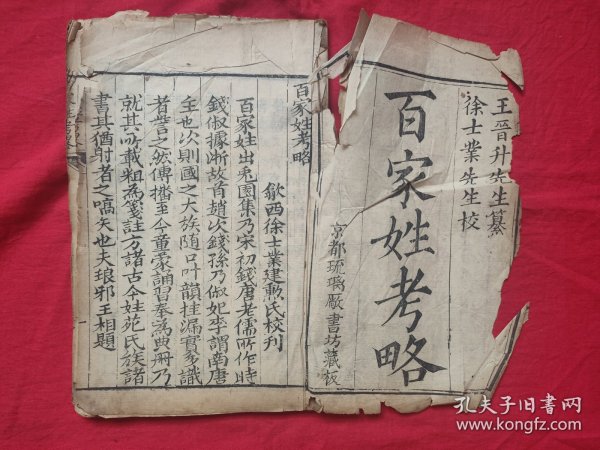 王晉升先生纂
徐士業先生校
百家姓考略
京都琉璃厰書坊藏板
百家姓考略
歙西徐士業建勲氏校刊
百家姓出兎園集乃宋初錢唐老儒所作時
錢俶據浙故首趙次錢孫乃俶妃李謂南唐
主也次則國之大族随口叶韻挂漏實多識
者訾之然傳播至今童蒙誦習奉為典冊乃
就其所載粗為箋註方諸古今姓苑氏族諸
書其猶射者之嚆矢也夫琅邪王相題
孔夫子旧书网
www.kongfz.com